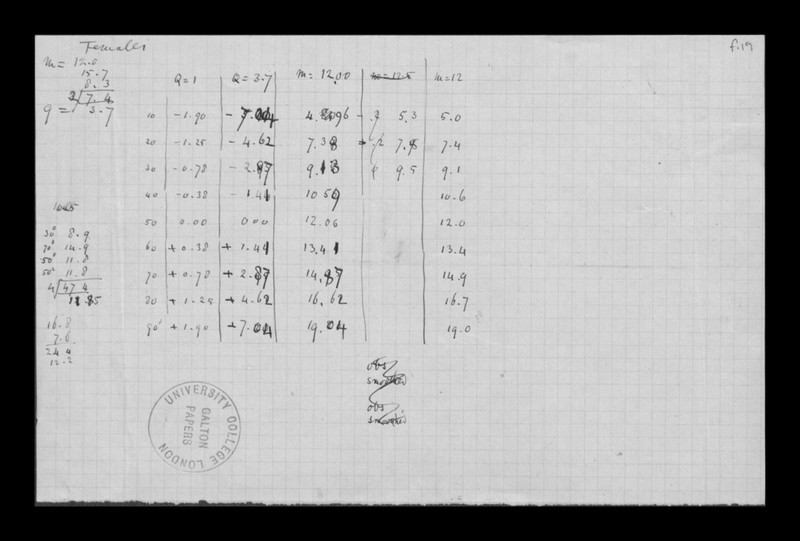 Females
f.19
m = 12.0
15.7
8.3
2 7.4
q = 3.7
Q = 1 Q = 3.7 m = 12.00 m = 12.5 m = 12
10 - 1.90 4.96 5.3 5.0
20 - 1.25 - 4.62 7.38 7.4
30 - 0.78 - 2.87 9.13 9.5 9.1
40 - 0.38 - 1.41 10.59 10.6
50 0.00 000 12.00 12.0
60 + 0.38 + 1.41 13.41 13.4
70 + 0.78 + 2.87 14.87 14.9
80 + 1.25 + 4.62 16.62 16.7
90 + 1.90 + 7.04 19.04 19.0
30 8.9
70 14.9
50 11.8
50 11.8
4 47 4
11.85
16.8
7.6
24 4
12.2
obs
smoothed
obs
smoothed
UNIVERSITY COLLEGE LONDON
GALTON
PAPERS